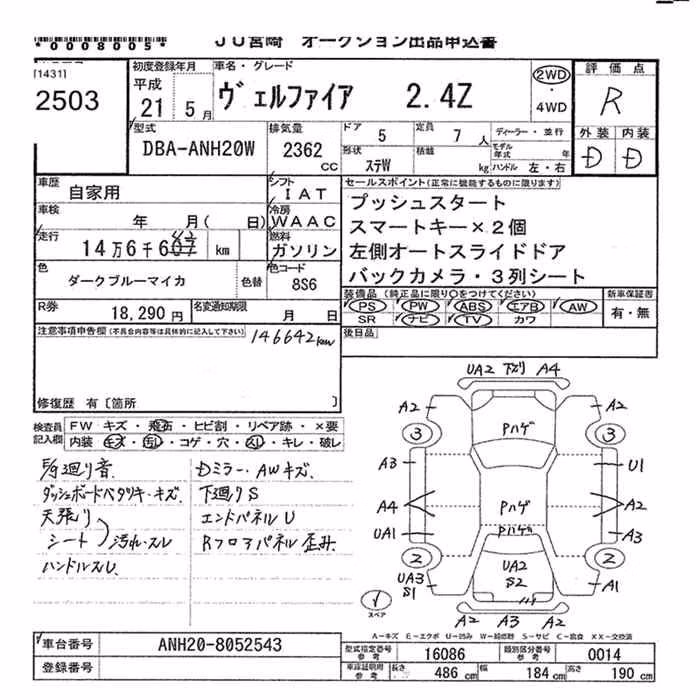 *0008005*
JU宮崎 オークション出品申込書
[1431]
2503
初度登録年月
平成
21 5月
車名・グレード
ヴェルファイア 2.4Z
2WD
・
4WD
評価点
R
外装 内装
D D
型式
DBA-ANH20W
排気量
2362
cc
ドア 5
定員 7 人
ディーラー・並行
形状 ステW
積載 kg
モデル年式 年
ハンドル 左・右
車歴
自家用
シフト
IAT
車検
年 月( 日)
冷房
WAAC
走行
14万6千607 km
42
燃料
ガソリン
色
ダークブルーマイカ
色替
色コード
8S6
R券
18,290 円
名変通知期限
月 日
セールスポイント(正常に機能するものに限ります)
プッシュスタート
スマートキー×2個
左側オートスライドドア
バックカメラ・3列シート
装備品(純正品に限り○をつけてください)
PS PW ABS エアB AW
SR ナビ TV カワ
新車保証書
有・無
注意事項申告欄(不具合内容等は具体的に記入して下さい)
146642km
後日品
修復歴 有〔箇所 〕
検査員
記入欄
FW キズ・飛石・ヒビ割・リペア跡・×要
内装 キズ・汚レ・コゲ・穴・スレ・キレ・破レ
所廻り音
ダッシュボードベタツキ・キズ
天張り
シート 汚れ・スレ
ハンドルスレ
Dミラー・AWキズ
下廻りS
エンドパネルU
Rフロアパネル歪み
UA2 下ガリ A4
A2 A2
3 3
Pハゲ
A3 U1
A4 Pハゲ A2
UA1 Pハゲ A3
2 2
UA2
S2
UA3
S1
A1
A2 A3 A2
スペア
A-キズ E-エクボ U-凹み W-補修跡 S-サビ C-腐食 XX-交換済
車台番号
ANH20-8052543
登録番号
型式指定番号
参考
16086
類別区分番号
参考
0014
車庫証明用
参考
長さ 486 cm
幅 184 cm
高さ 190 cm